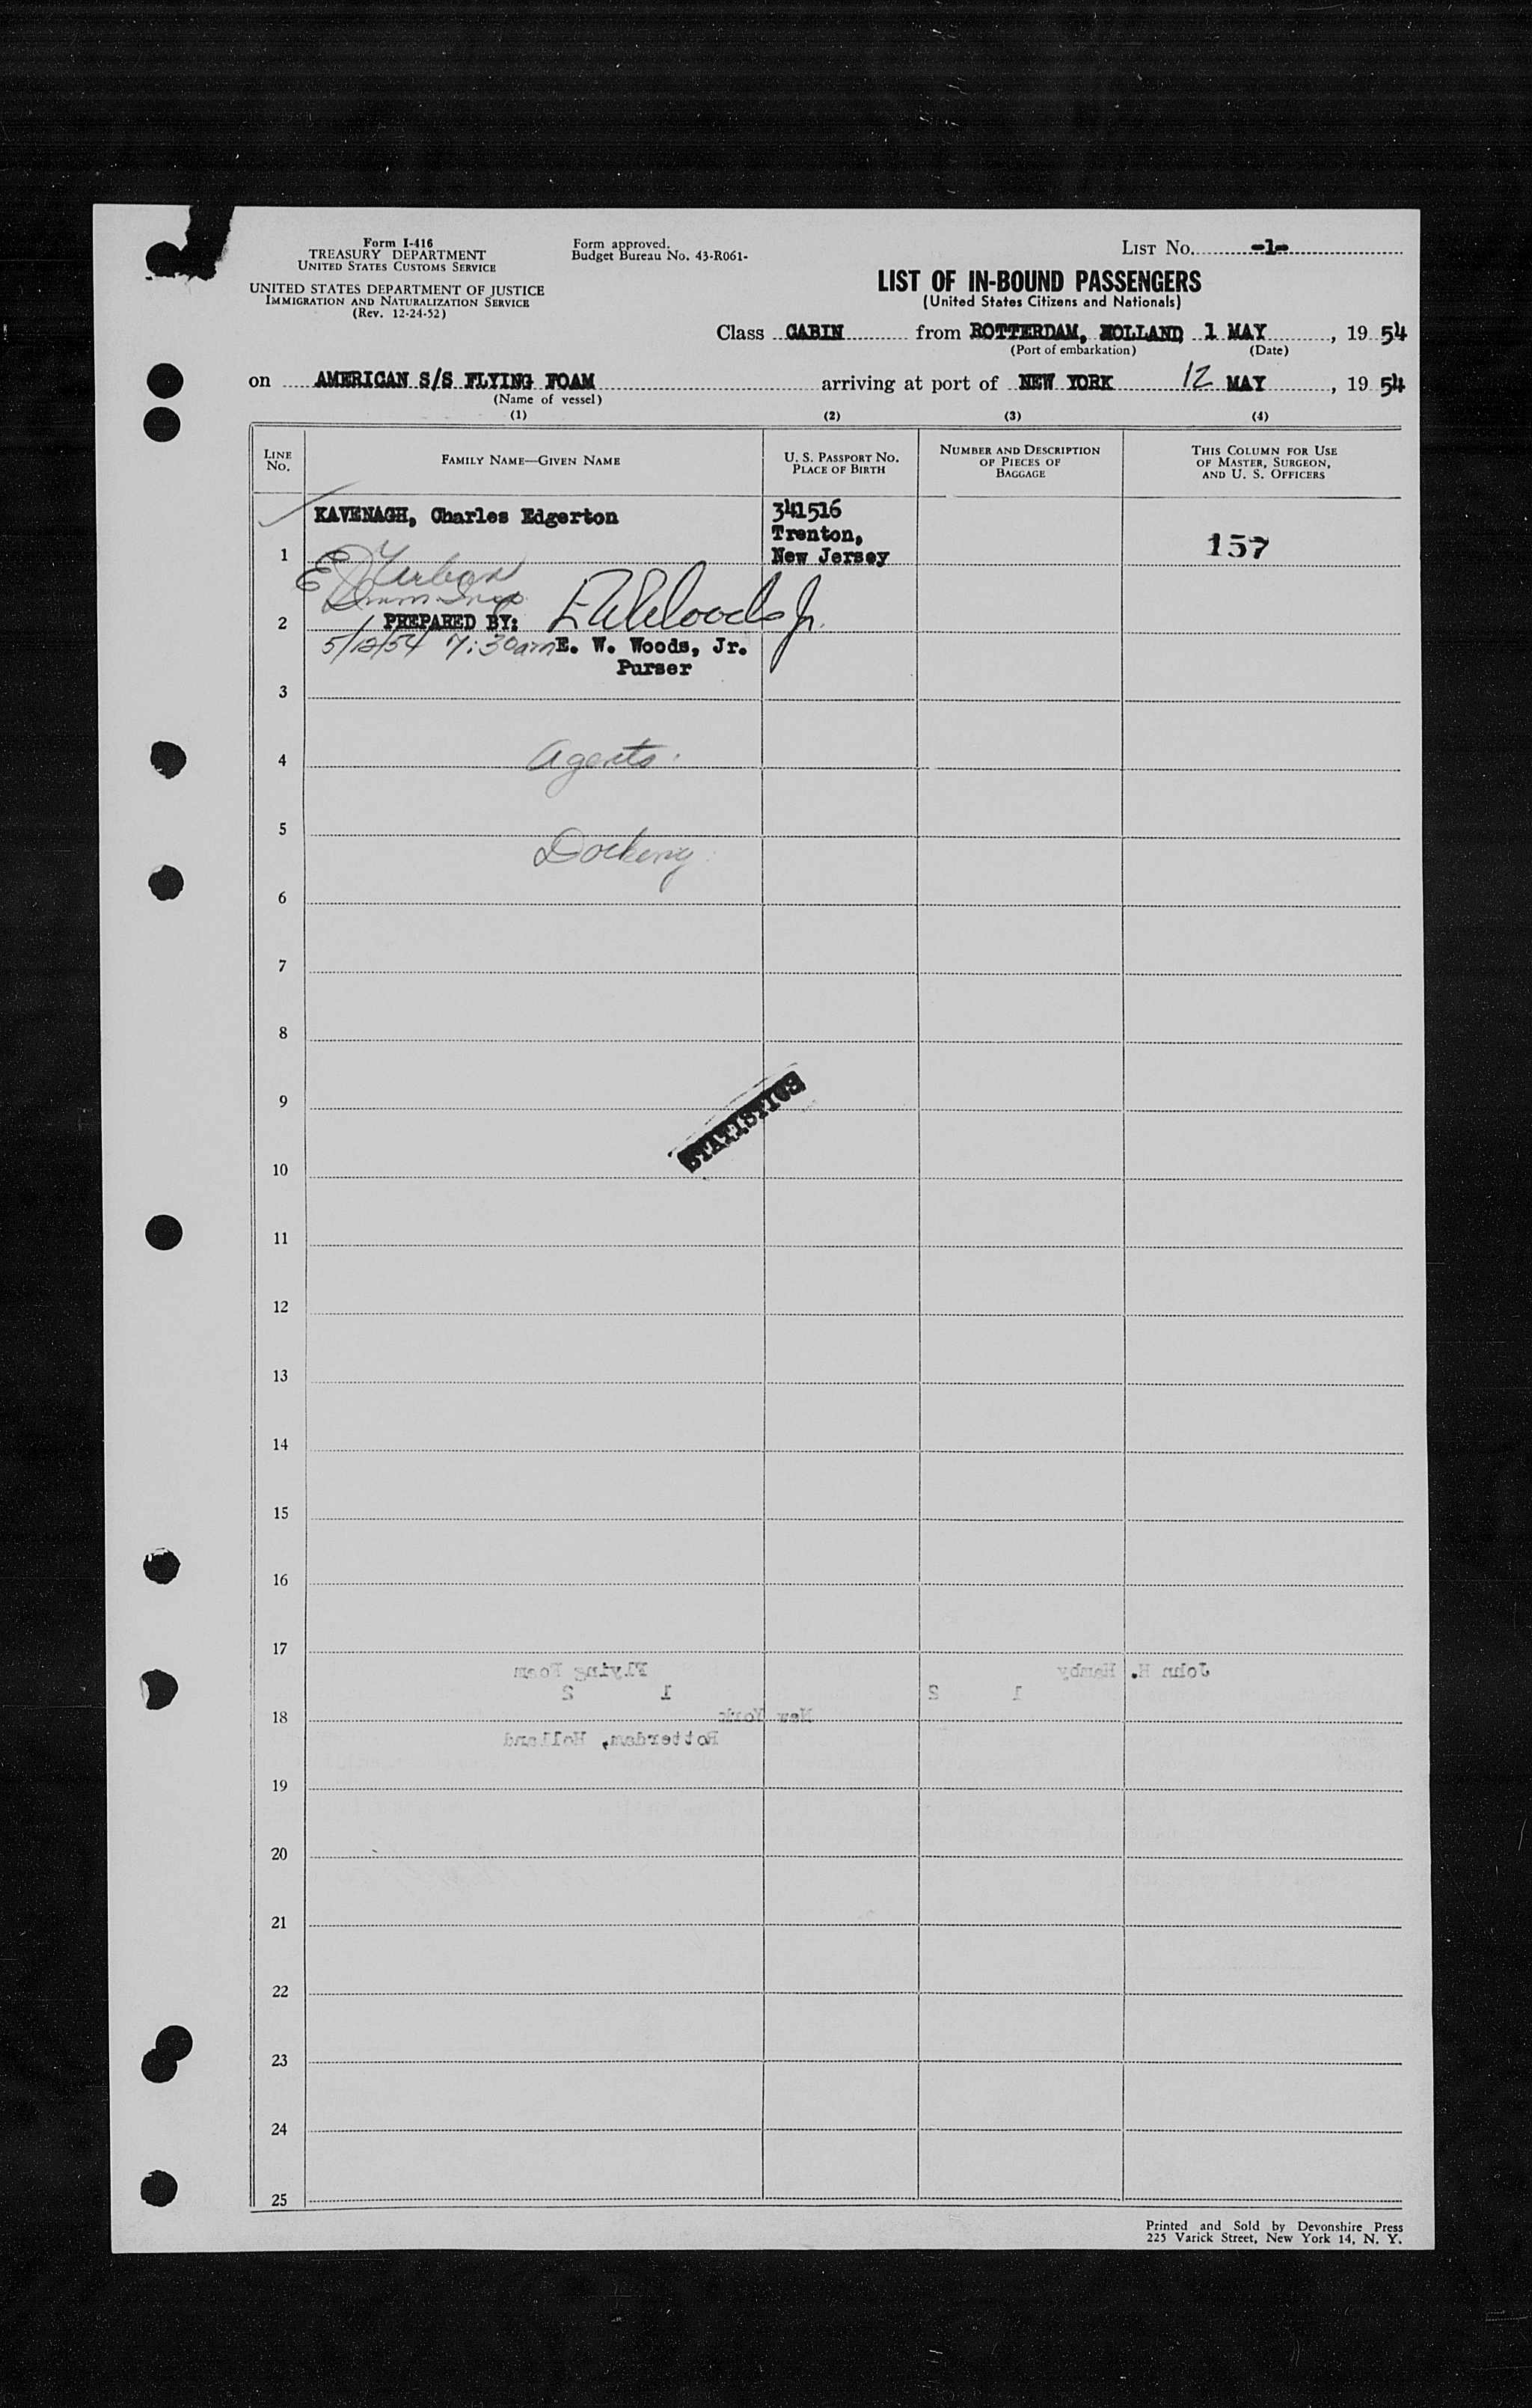 Form I-416
TREASURY DEPARTMENT
UNITED STATES CUSTOMS SERVICE
UNITED STATES DEPARTMENT OF JUSTICE
IMMIGRATION AND NATURALIZATION SERVICE
(Rev. 12-24-52)
Form approved.
Budget Bureau No. 43-R061-
LIST No. -1-
LIST OF IN-BOUND PASSENGERS
(United States Citizens and Nationals)
Class CABIN from ROTTERDAM, HOLLAND 1 MAY, 19 54
(Port of embarkation) (Date)
on AMERICAN S/S FLYING FOAM arriving at port of NEW YORK 12 MAY, 19 54
(Name of vessel)
(1) (2) (3) (4)
LINE No. FAMILY NAME—GIVEN NAME U. S. PASSPORT No. PLACE OF BIRTH NUMBER AND DESCRIPTION OF PIECES OF BAGGAGE THIS COLUMN FOR USE OF MASTER, SURGEON, AND U. S. OFFICERS
KAVENAGH, Charles Edgerton 341516
Trenton,
1 New Jersey 157
2 PREPARED BY: E W Woods Jr.
5/12/54 7:30am E. W. Woods, Jr.
Purser
3
4 Agents.
5
Docking
6
7
8
9
STATISTICS
10
11
12
13
14
15
16
17
John H. Hamby Flying Foam
1 2 1 2
18 New York
Rotterdam, Holland
19
20
21
22
23
24
25
Printed and Sold by Devonshire Press
225 Varick Street, New York 14, N. Y.